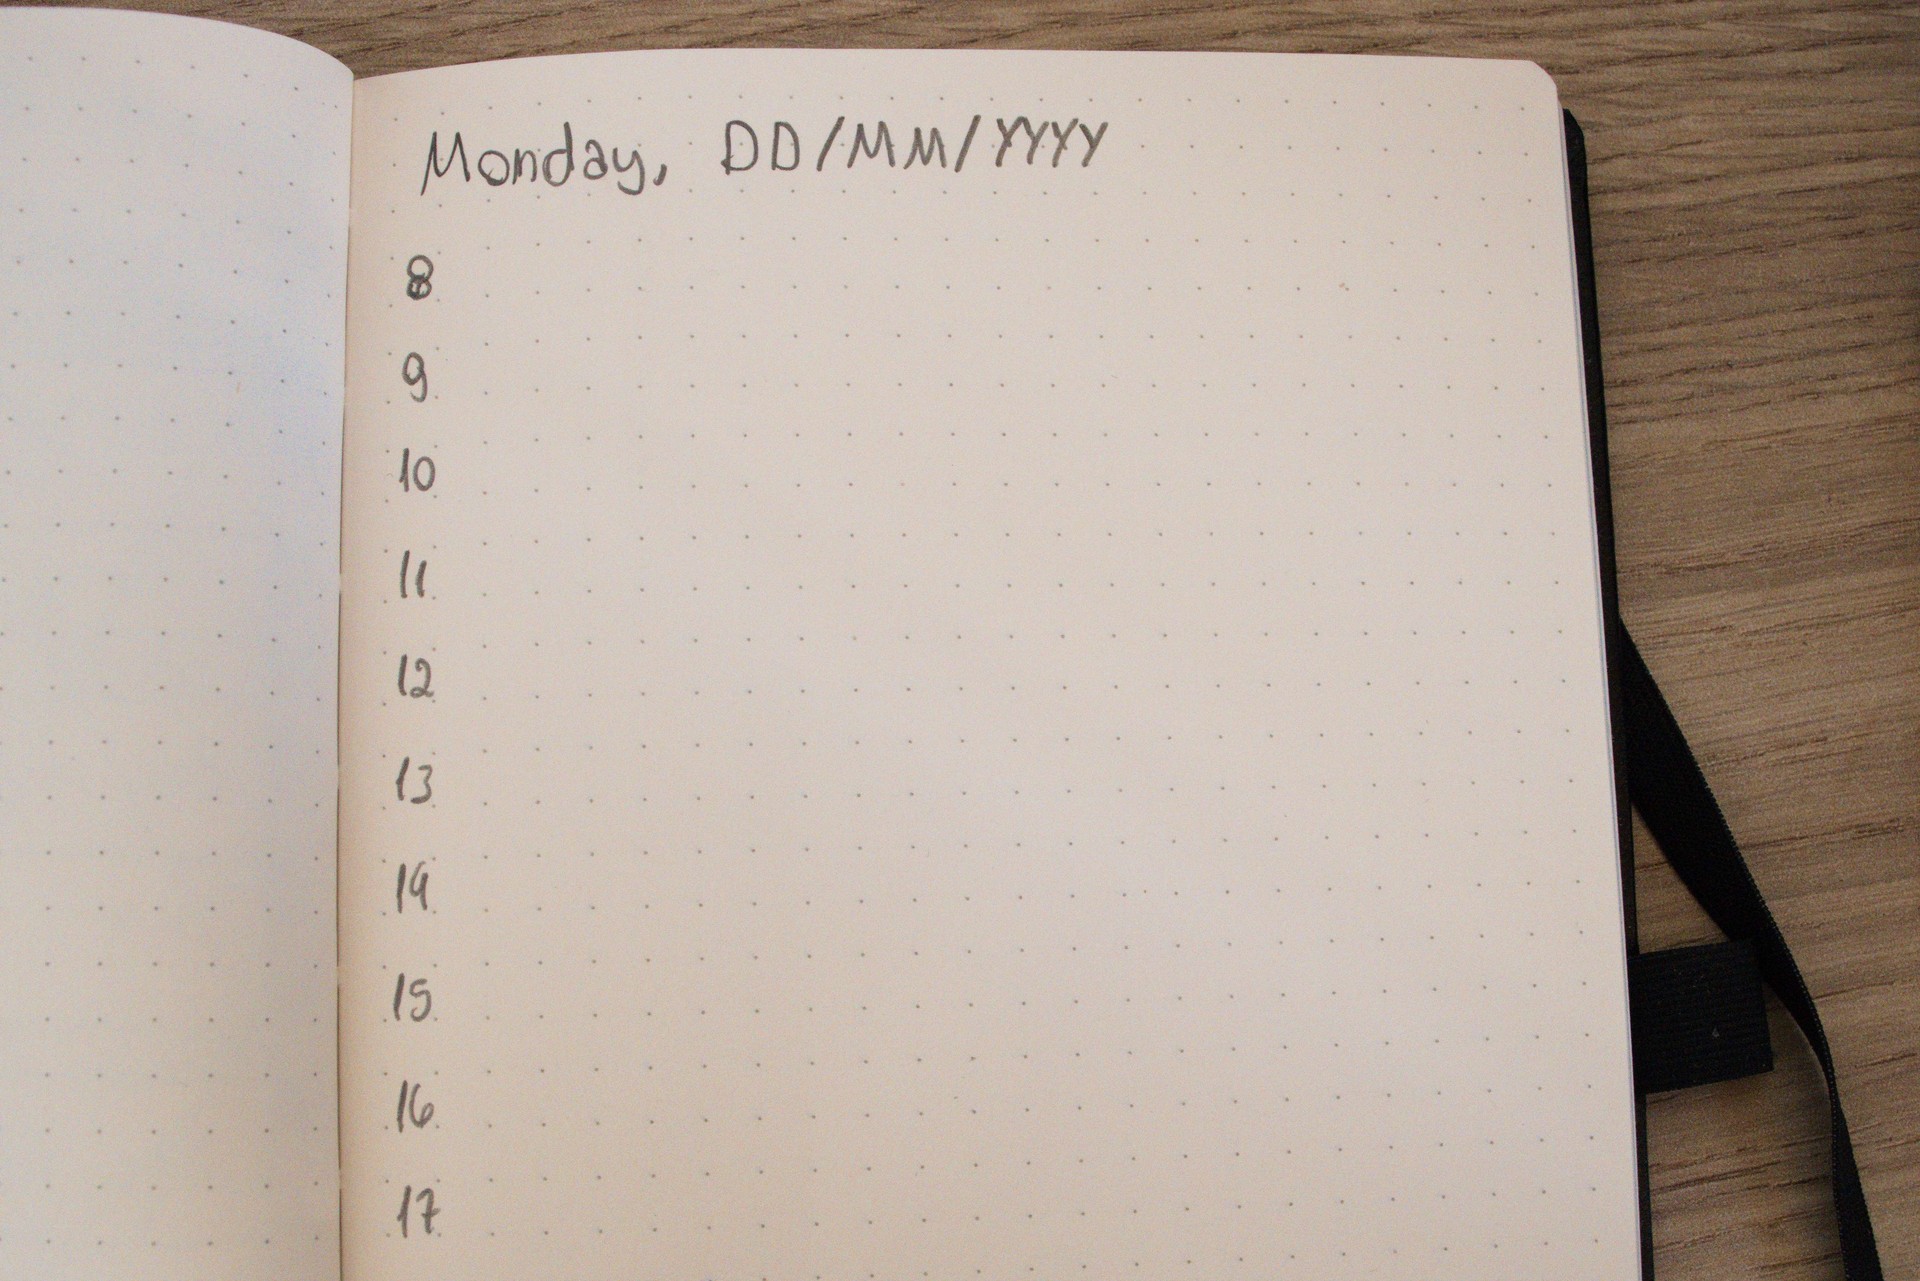 Monday, DD/MM/YYYY
8
9
10
11
12
13
14
15
16
17